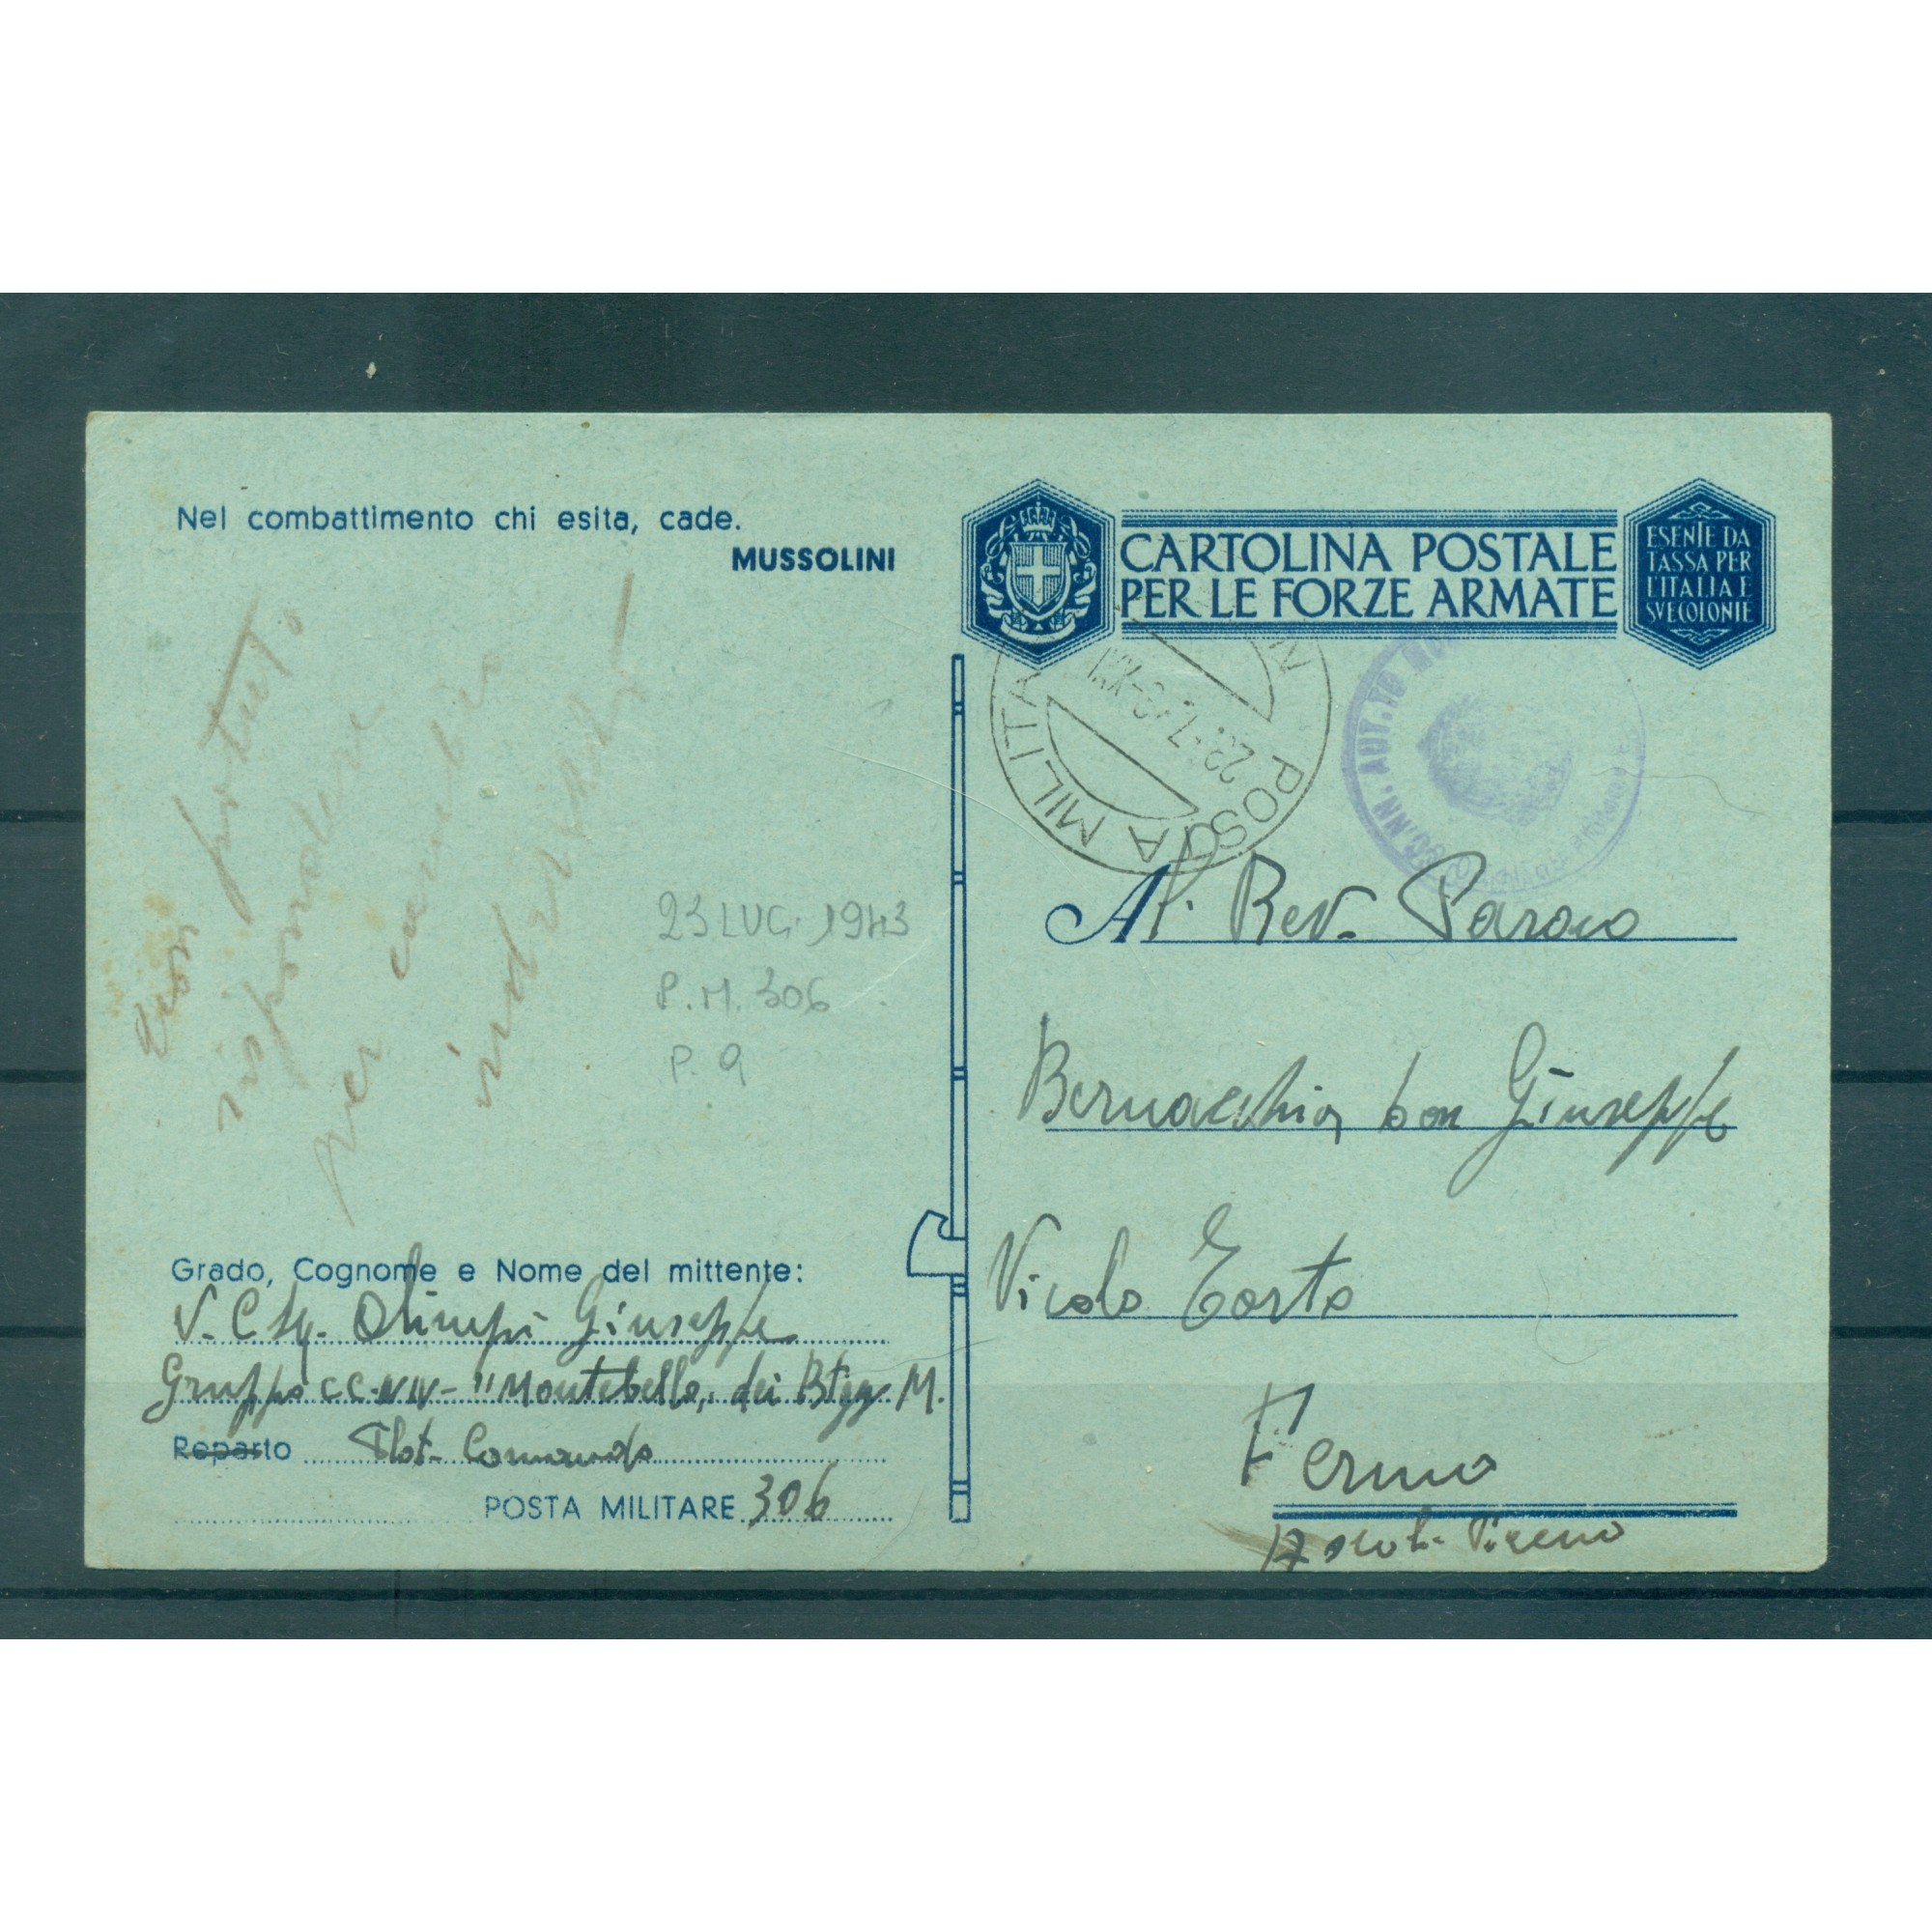 Nel combattimento chi esita, cade.
MUSSOLINI
CARTOLINA POSTALE
PER LE FORZE ARMATE
ESENTE DA
TASSA PER
L'ITALIA E
SVE COLONIE
POSTA MILITA
22-7-43-XXI
CC.NN. AUT.TO
Non potuto
rispondere
per
23 LUG. 1943
P.M. 306
P. 9
Al Rev. Paroco
Bernacchia Don Giuseppe
Vicolo Torto
Fermo
Ascoli Piceno
Grado, Cognome e Nome del mittente:
V. C Sq. Olimpi Giuseppe
Gruppo CC.NN - "Montebello" dei Btgg M.
Reparto Plot. Comando
POSTA MILITARE 306